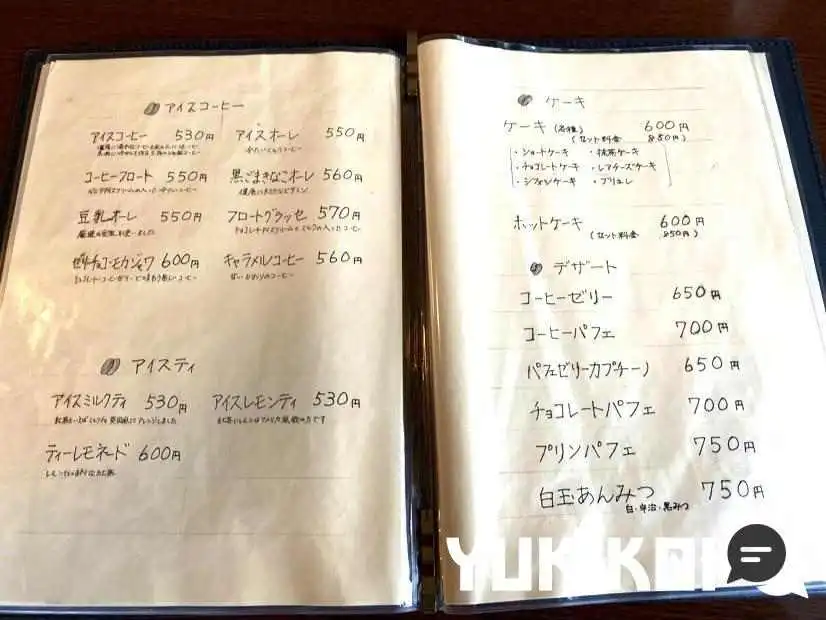 アイスコーヒー
アイスコーヒー 530円
アイスオーレ 550円
冷たいミルクコーヒー
コーヒーフロート 550円
黒ごまきなこオーレ 560円
豆乳オーレ 550円
フロートグラッセ 570円
ゼリーチョコモカジャワ 600円
キャラメルコーヒー 560円
アイスティ
アイスミルクティ 530円
アイスレモンティ 530円
ティーレモネード 600円
ケーキ
ケーキ (各種) 600円
(セット料金 850円)
・ショートケーキ ・抹茶ケーキ
・チョコレートケーキ ・レアチーズケーキ
・シフォンケーキ ・ブリュレ
ホットケーキ 600円
(セット料金 850円)
デザート
コーヒーゼリー 650円
コーヒーパフェ 700円
パフェゼリーカプチーノ 650円
チョコレートパフェ 700円
プリンパフェ 750円
白玉あんみつ 750円
白・宇治・黒みつ